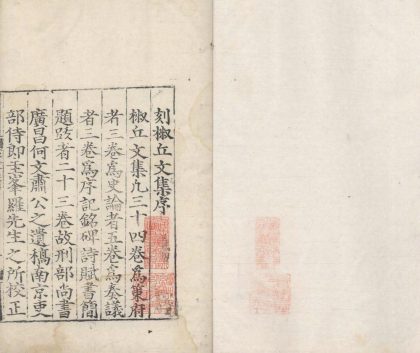 刻椒丘文集序
椒丘文集凡三十四卷爲策府
者三卷爲史論者五卷爲奏議
者三卷爲序記銘碑詩賦書簡
題跋者二十三卷故刑部尚書
廣昌何文肅公之遺稿南京吏
部侍郎圭峯羅先生之所校正